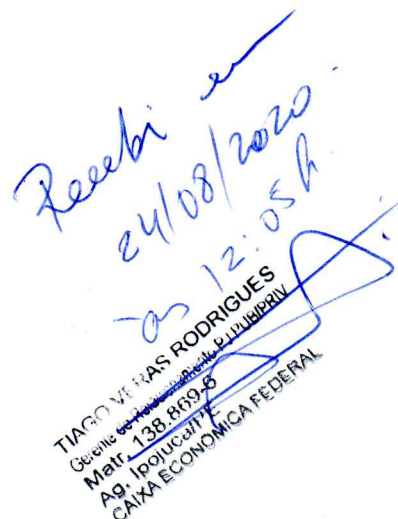 Recebi em
24/08/2020.
às 12:05h.
TIAGO VERAS RODRIGUES
Gerente de Relacionamento PJ PUB/PRIV
Matr. 138.869-6
Ag. Ipojuca/PE
CAIXA ECONÔMICA FEDERAL